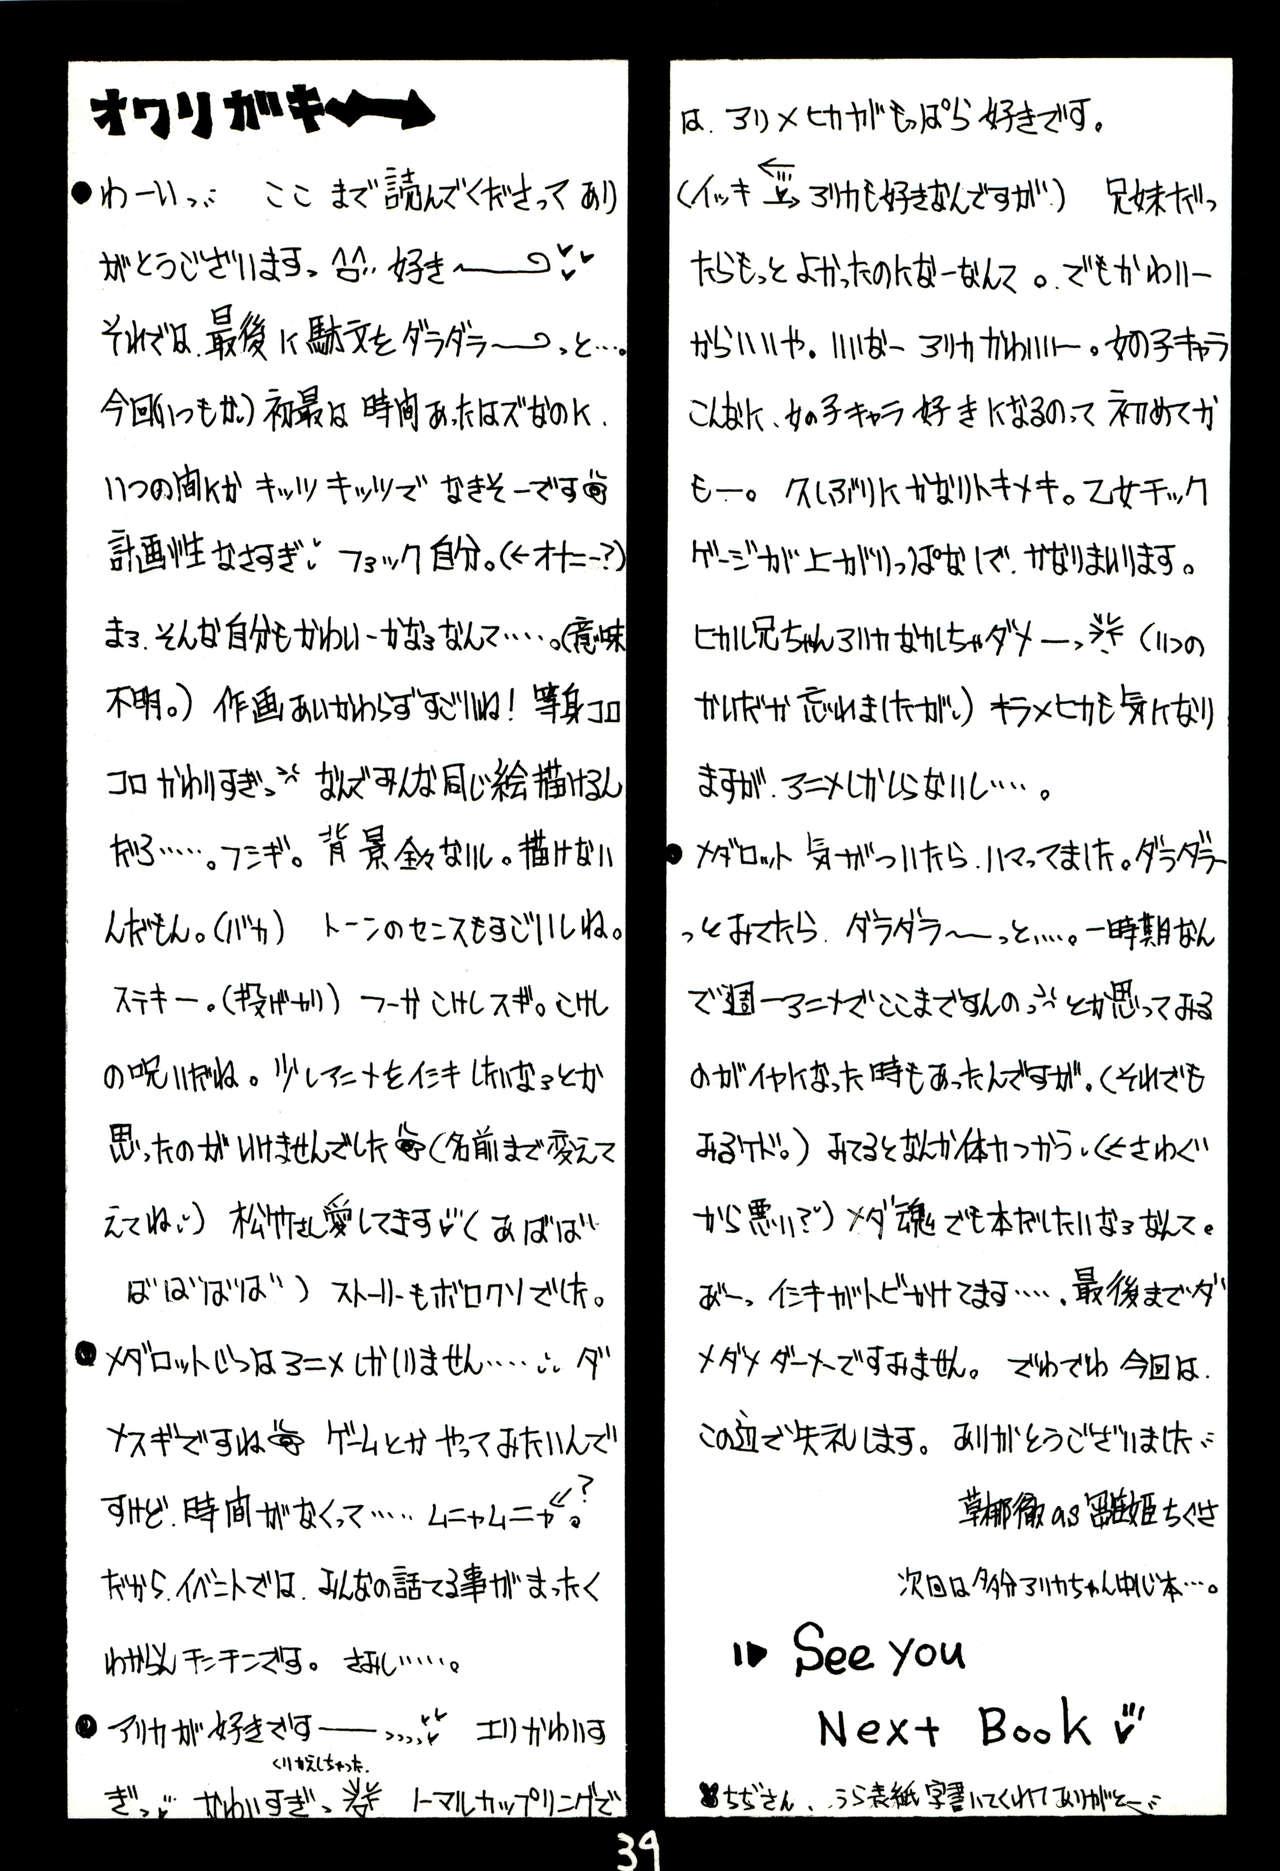 オワリガキ
わーいっ ここ まで 読んでくださって あり
がとうございますっ 好き〜
それでは、最後に駄文をダラダラ〜っと…。
今回(いつもか)初最は 時間あったはズなのに、
いつの間にか キッツキッツで なきそーです
計画性なさすぎ 自分。(←オナニー?)
まぁ、そんな自分もかわいーかなぁなんて……。(意味
不明。) 作画あいかわらずすごいね! 等身コロ
コロかわりすぎっ なんでみんな同じ絵描けるん
だろ……。フシギ。 背景全々ないし。描けない
んだもん。(バカ) トーンのセンスもすごいしね。
ステキー。(投げやり) つーか こけしスギ。こけし
の呪いだね。少しアニメをイシキしたいなぁとか
思ったのがいけませんでした(名前まで変えて
えてね) 松竹さん愛してます( あばばば
ばばばば) ストーリーもボロクソでした。
メダロットじつはアニメしかしりません…… ダ
メスギですね ゲームとか やってみたいんで
すけど、時間がなくって…… ムニャムニャ。?
だから、イベントでは、みんなの話てる事がまったく
わからんチンチンです。さみしい……。
アリカが好きですーーっっっ エリかわいす
くりかえしちゃった
ぎっ かわいすぎっ トーマルカップリングで
は、アリ×ヒカがもっぱら好きです。
(イッキ アリカも好きなんですが) 兄妹だっ
たらもっとよかったのになーなんて。でもかわいー
からいいや。いいなー アリカかわいいー。女の子キャラ
こんなに、女の子キャラ好きになるのって 初めてか
もー。久しぶりにかなりトキメキ。乙女チック
ゲージが上がりっぱなしで、かなりまいります。
ヒカル兄ちゃんアリカなかしちゃダメーっ (いつの
かいだか忘れましたが) キラ×ヒカも気になり
ますが、アニメしかしらないし……。
メダロット 気がついたら、ハマってました。ダラダラー
っとみてたら、ダラダラ〜っと……。一時期なん
で週一アニメでここまですんのっとか思ってみる
のがイヤになった時もあったんですが。(それでも
みるケド。) みてるとなんか体力つかう(←さわぐ
から悪い?) メダ魂でも本だしたいなぁなんて。
あーっ イシキがトビかけてます……、最後までダ
メダメダーメですみません。でわでわ 今回は、
この辺で失礼します。ありがとうございました
草那徹as 雛姫ちぐさ
次回は多分アリカちゃん中心本…。
See you
Next Book
ちぢさん、うら表紙字書いてくれてありがとー
39